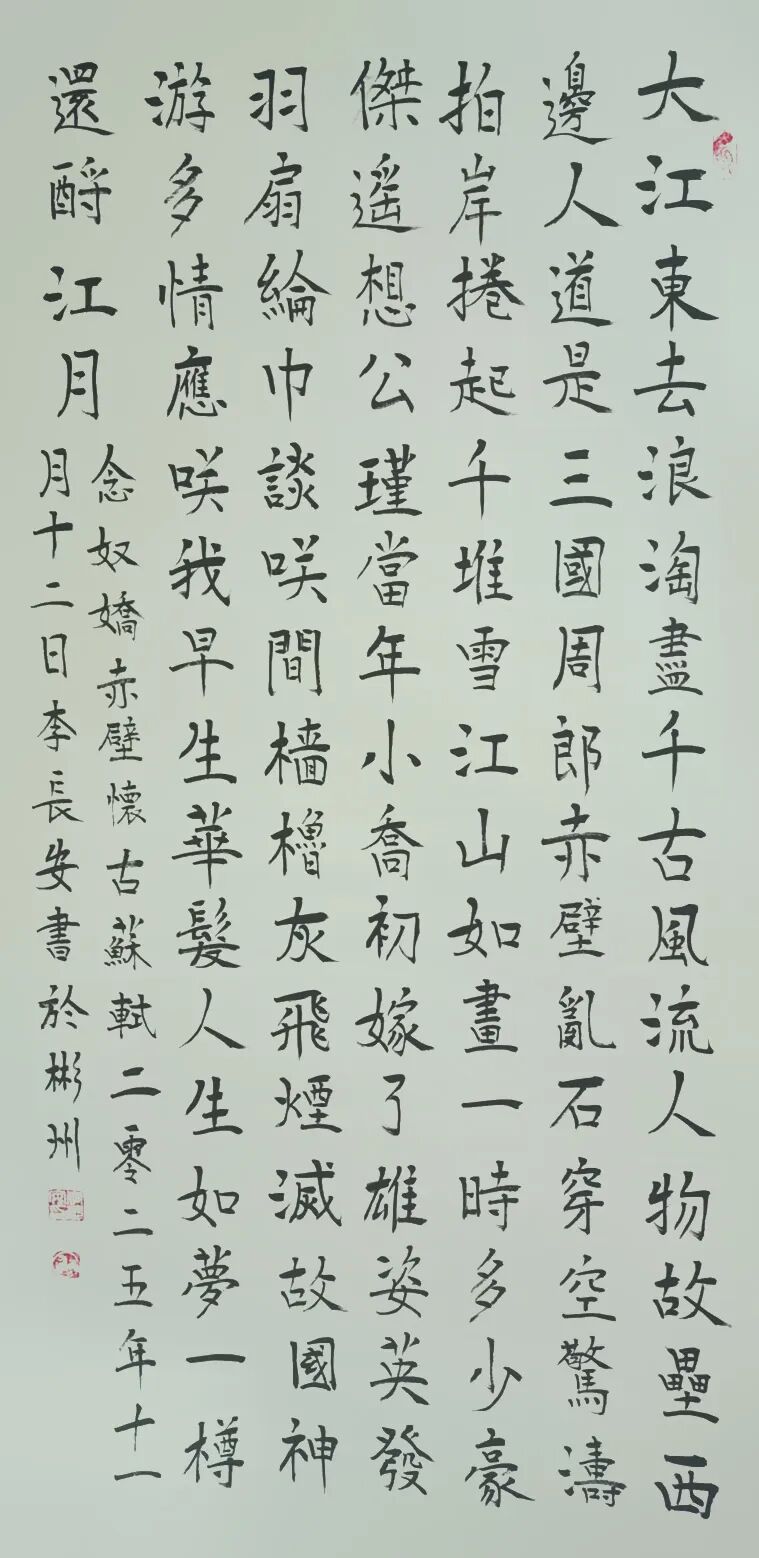 大江東去浪淘盡千古風流人物故壘西
邊人道是三國周郎赤壁亂石穿空驚濤
拍岸捲起千堆雪江山如畫一時多少豪
傑遥想公瑾當年小喬初嫁了雄姿英發
羽扇綸巾談咲間檣櫓灰飛煙滅故國神
游多情應咲我早生華髮人生如夢一樽
還酹江月
念奴嬌赤壁懷古蘇軾二零二五年十一
月十二日李長安書於彬州